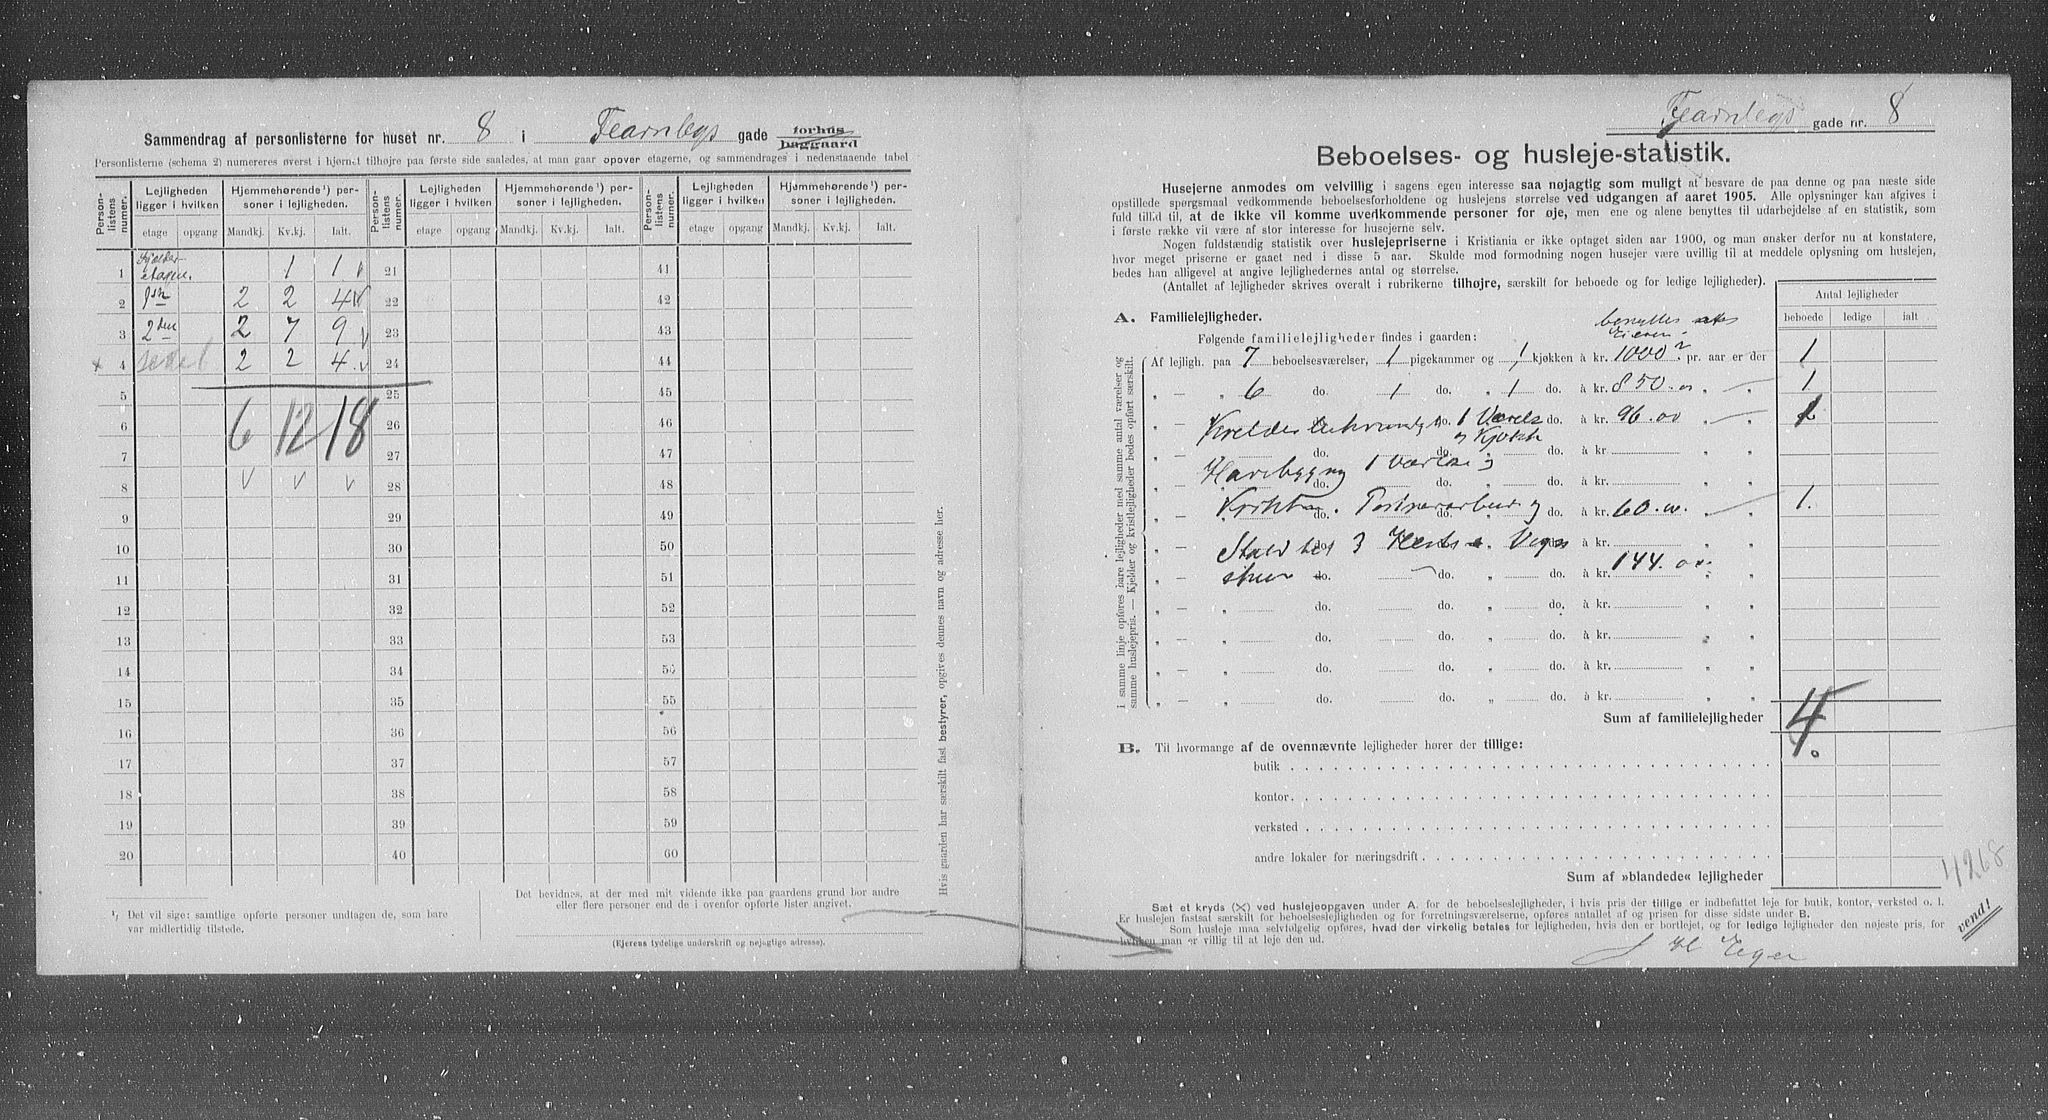 Sammendrag af personlisterne for huset nr. 8 i Fearnleys gade forhus baggaard
Personlisterne (schema 2) numereres øverst i hjørnet tilhøjre paa første side saaledes, at man gaar opover etagerne, og sammendrages i nedenstaaende tabel
Person-listens numer. Lejligheden ligger i hvilken Hjemmehørende¹) personer i lejligheden. Person-listens numer. Lejligheden ligger i hvilken Hjemmehørende¹) personer i lejligheden. Person-listens numer. Lejligheden ligger i hvilken Hjemmehørende¹) personer i lejligheden.
etage opgang Mandkj. Kv.kj. Ialt. etage opgang Mandkj. Kv.kj. Ialt. etage opgang Mandkj. Kv.kj. Ialt.
1 Kjælder etagen. 1 1 21 41
2 1ste 2 2 4 22 42
3 2den 2 7 9 23 43
× 4 2 2 4 24 44
5 25 45
6 6 12 18 26 46
7 27 47
8 28 48
9 29 49
10 30 50
11 31 51
12 32 52
13 33 53
14 34 54
15 35 55
16 36 56
17 37 57
18 38 58
19 39 59
20 40 60
¹/ Det vil sige: samtlige opførte personer undtagen de, som bare
var midlertidig tilstede.
Det bevidnes, at der med mit vidende ikke paa gaardens grund bor andre
eller flere personer end de i ovenfor opførte lister angivet.
(Ejerens tydelige underskrift og nøjagtige adresse).
Hvis gaarden har særskilt fast bestyrer, opgives dennes navn og adresse her.
Fearnleys gade nr. 8
Beboelses- og husleje-statistik.
Husejerne anmodes om velvillig i sagens egen interesse saa nøjagtig som muligt at besvare de paa denne og paa næste side
opstillede spørgsmaal vedkommende beboelsesforholdene og huslejens størrelse ved udgangen af aaret 1905. Alle oplysninger kan afgives i
fuld tillid til, at de ikke vil komme uvedkommende personer for øje, men ene og alene benyttes til udarbejdelse af en statistik, som
i første række vil være af stor interesse for husejerne selv.
Nogen fuldstændig statistik over huslejepriserne i Kristiania er ikke optaget siden aar 1900, og man ønsker derfor nu at konstatere,
hvor meget priserne er gaaet ned i disse 5 aar. Skulde mod formodning nogen husejer være uvillig til at meddele oplysning om huslejen,
bedes han alligevel at angive lejlighedernes antal og størrelse.
(Antallet af lejligheder skrives overalt i rubrikerne tilhøjre, særskilt for beboede og for ledige lejligheder).
Antal lejligheder
beboede ledige ialt
A. Familielejligheder.
benyttes af Eieren
Følgende familielejligheder findes i gaarden:
Af lejligh. paa 7 beboelsesværelser, 1 pigekammer og 1 kjøkken à kr. 1000 pr. aar er der 1
„ — „ 6 do. 1 do. „ 1 do. à kr. 850.00 „ „ 1
„ — do. do. 1 Værels do. à kr. 96.00 „ „ 1
„ — do. do. „ og Kjøkk do. à kr. „ „
„ — Havebygning 1 Værelse og do. do. do. à kr. „ „
„ — do. do. „ do. à kr. 60.00 „ „ 1.
„ — Stald til 3 Heste Vogn do. do. à kr. „ „
„ — skur do. do. „ do. à kr. 144.00 „ „
„ — „ do. do. „ do. à kr. „ „
„ — „ do. do. „ do. à kr. „ „
„ — „ do. do. „ do. à kr. „ „
„ — „ do. do. „ do. à kr. „ „
I samme linje opføres bare lejligheder med samme antal værelser og
samme huslejepris. — Kjelder og kvistlejligheder bedes opført særskilt.
Sum af familielejligheder 4.
B. Til hvormange af de ovennævnte lejligheder hører der tillige:
butik
kontor
verksted
andre lokaler for næringsdrift
Sum af »blandede« lejligheder
4268
Sæt et kryds (×) ved huslejeopgaven under A. for de beboelseslejligheder, i hvis pris der tillige er indbefattet leje for butik, kontor, verksted o. l.
Er huslejen fastsat særskilt for beboelseslejligheden og for forretningsværelserne, opføres antallet af og prisen for disse sidste under B.
Som husleje maa selvfølgelig opføres, hvad der virkelig betales for lejligheden, hvis den er bortlejet, og for ledige lejligheder den nøjeste pris, for
hvilken man er villig til at leje den ud.
vend!
H Eger